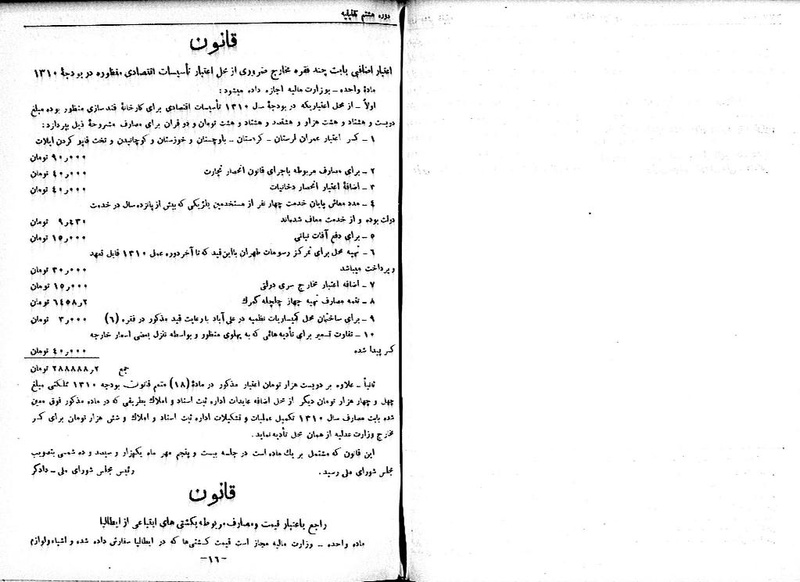 دوره هشتم تقنینیه
قانون
اعتبار اضافی بابت چند فقره مخارج ضروری از محل اعتبار تأسیسات اقتصادی منظوره در بودجهٔ ۱۳۱۰
مادهٔ واحده ــ بوزارت مالیه اجازه داده میشود:
اولاً ــ از محل اعتباریکه در بودجهٔ سال ۱۳۱۰ تأسیسات اقتصادی برای کارخانهٔ قندسازی منظور بوده مبلغ
دویست و هشتاد و هشت هزار و هشتصد و هشتاد و هشت تومان و دو قران برای مصارف مشروحهٔ ذیل بپردازد:
۱ ــ کسر اعتبار عمران لرستان ــ کردستان ــ بلوچستان و خوزستان و کوچانیدن و تخت قاپو کردن ایلات
۹۰٫۰۰۰ تومان
۲ ــ برای مصارف مربوطه باجرای قانون انحصار تجارت ۴۰٫۰۰۰ تومان
۳ ــ اضافهٔ اعتبار انحصار دخانیات ۴۰٫۰۰۰ تومان
۴ ــ مدد معاش پایان خدمت چهار نفر از مستخدمین بلژیکی که بیش از پانزده سال در خدمت
دولت بوده و از خدمت معاف شده‌اند ۹٫۴۳۰ تومان
۵ ــ برای دفع آفات نباتی ۱۵٫۰۰۰ تومان
۶ ــ تهیه محل برای تمرکز رسومات طهران با این قید که تا آخر دوره عمل ۱۳۱۰ قابل تعهد
و پرداخت میباشد ۳۰٫۰۰۰ تومان
۷ ــ اضافه اعتبار مخارج سری دولتی ۱۵٫۰۰۰ تومان
۸ ــ تتمه مصارف تهیه جهاز چلچله گمرک ۶۴۵۸٫۲ تومان
۹ ــ برای ساختمان محل کمیساریات نظمیه در علی آباد با رعایت قید مذکور در فقره (۶) ۳٫۰۰۰ تومان
۱۰ ــ تفاوت تسعیر برای تأدیه هائی که به پهلوی منظور و بواسطه تنزل بعضی اسعار خارجه
کسر پیدا شده ۴۰٫۰۰۰ تومان
جمع ۲۸۸۸۸۸٫۲ تومان
ثانیاً ــ علاوه بر دویست هزار تومان اعتبار مذکور در مادهٔ (۱۸) متمم قانون بودجه ۱۳۱۰ مملکتی مبلغ
چهل و چهار هزار تومان دیگر از محل اضافه عایدات اداره ثبت اسناد و املاک بطریقی که در ماده مذکور فوق معین
شده بابت مصارف سال ۱۳۱۰ تکمیل عملیات و تشکیلات اداره ثبت اسناد و املاک و شش هزار تومان برای کسر
مخارج وزارت عدلیه از همان محل تأدیه نماید.
این قانون که مشتمل بر یک ماده است در جلسه بیست و پنجم مهر ماه یکهزار و سیصد و ده شمسی بتصویب
مجلس شورای ملی رسید. رئیس مجلس شورای ملی ــ دادگر
قانون
راجع باعتبار قیمت و مصارف مربوطه بکشتی های ابتیاعی از ایطالیا
ماده واحده ــ وزارت مالیه مجاز است قیمت کشتی‌ها که در ایطالیا سفارش داده شده و اشیاء و لوازم
–۱۶–